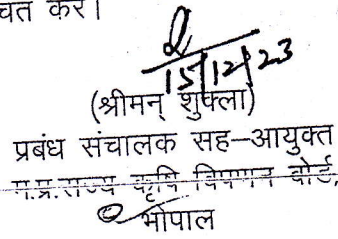 चत करें।
15/12/23
(श्रीमन् शुक्ला)
प्रबंध संचालक सह-आयुक्त
म.प्र.राज्य कृषि विपणन बोर्ड,
भोपाल